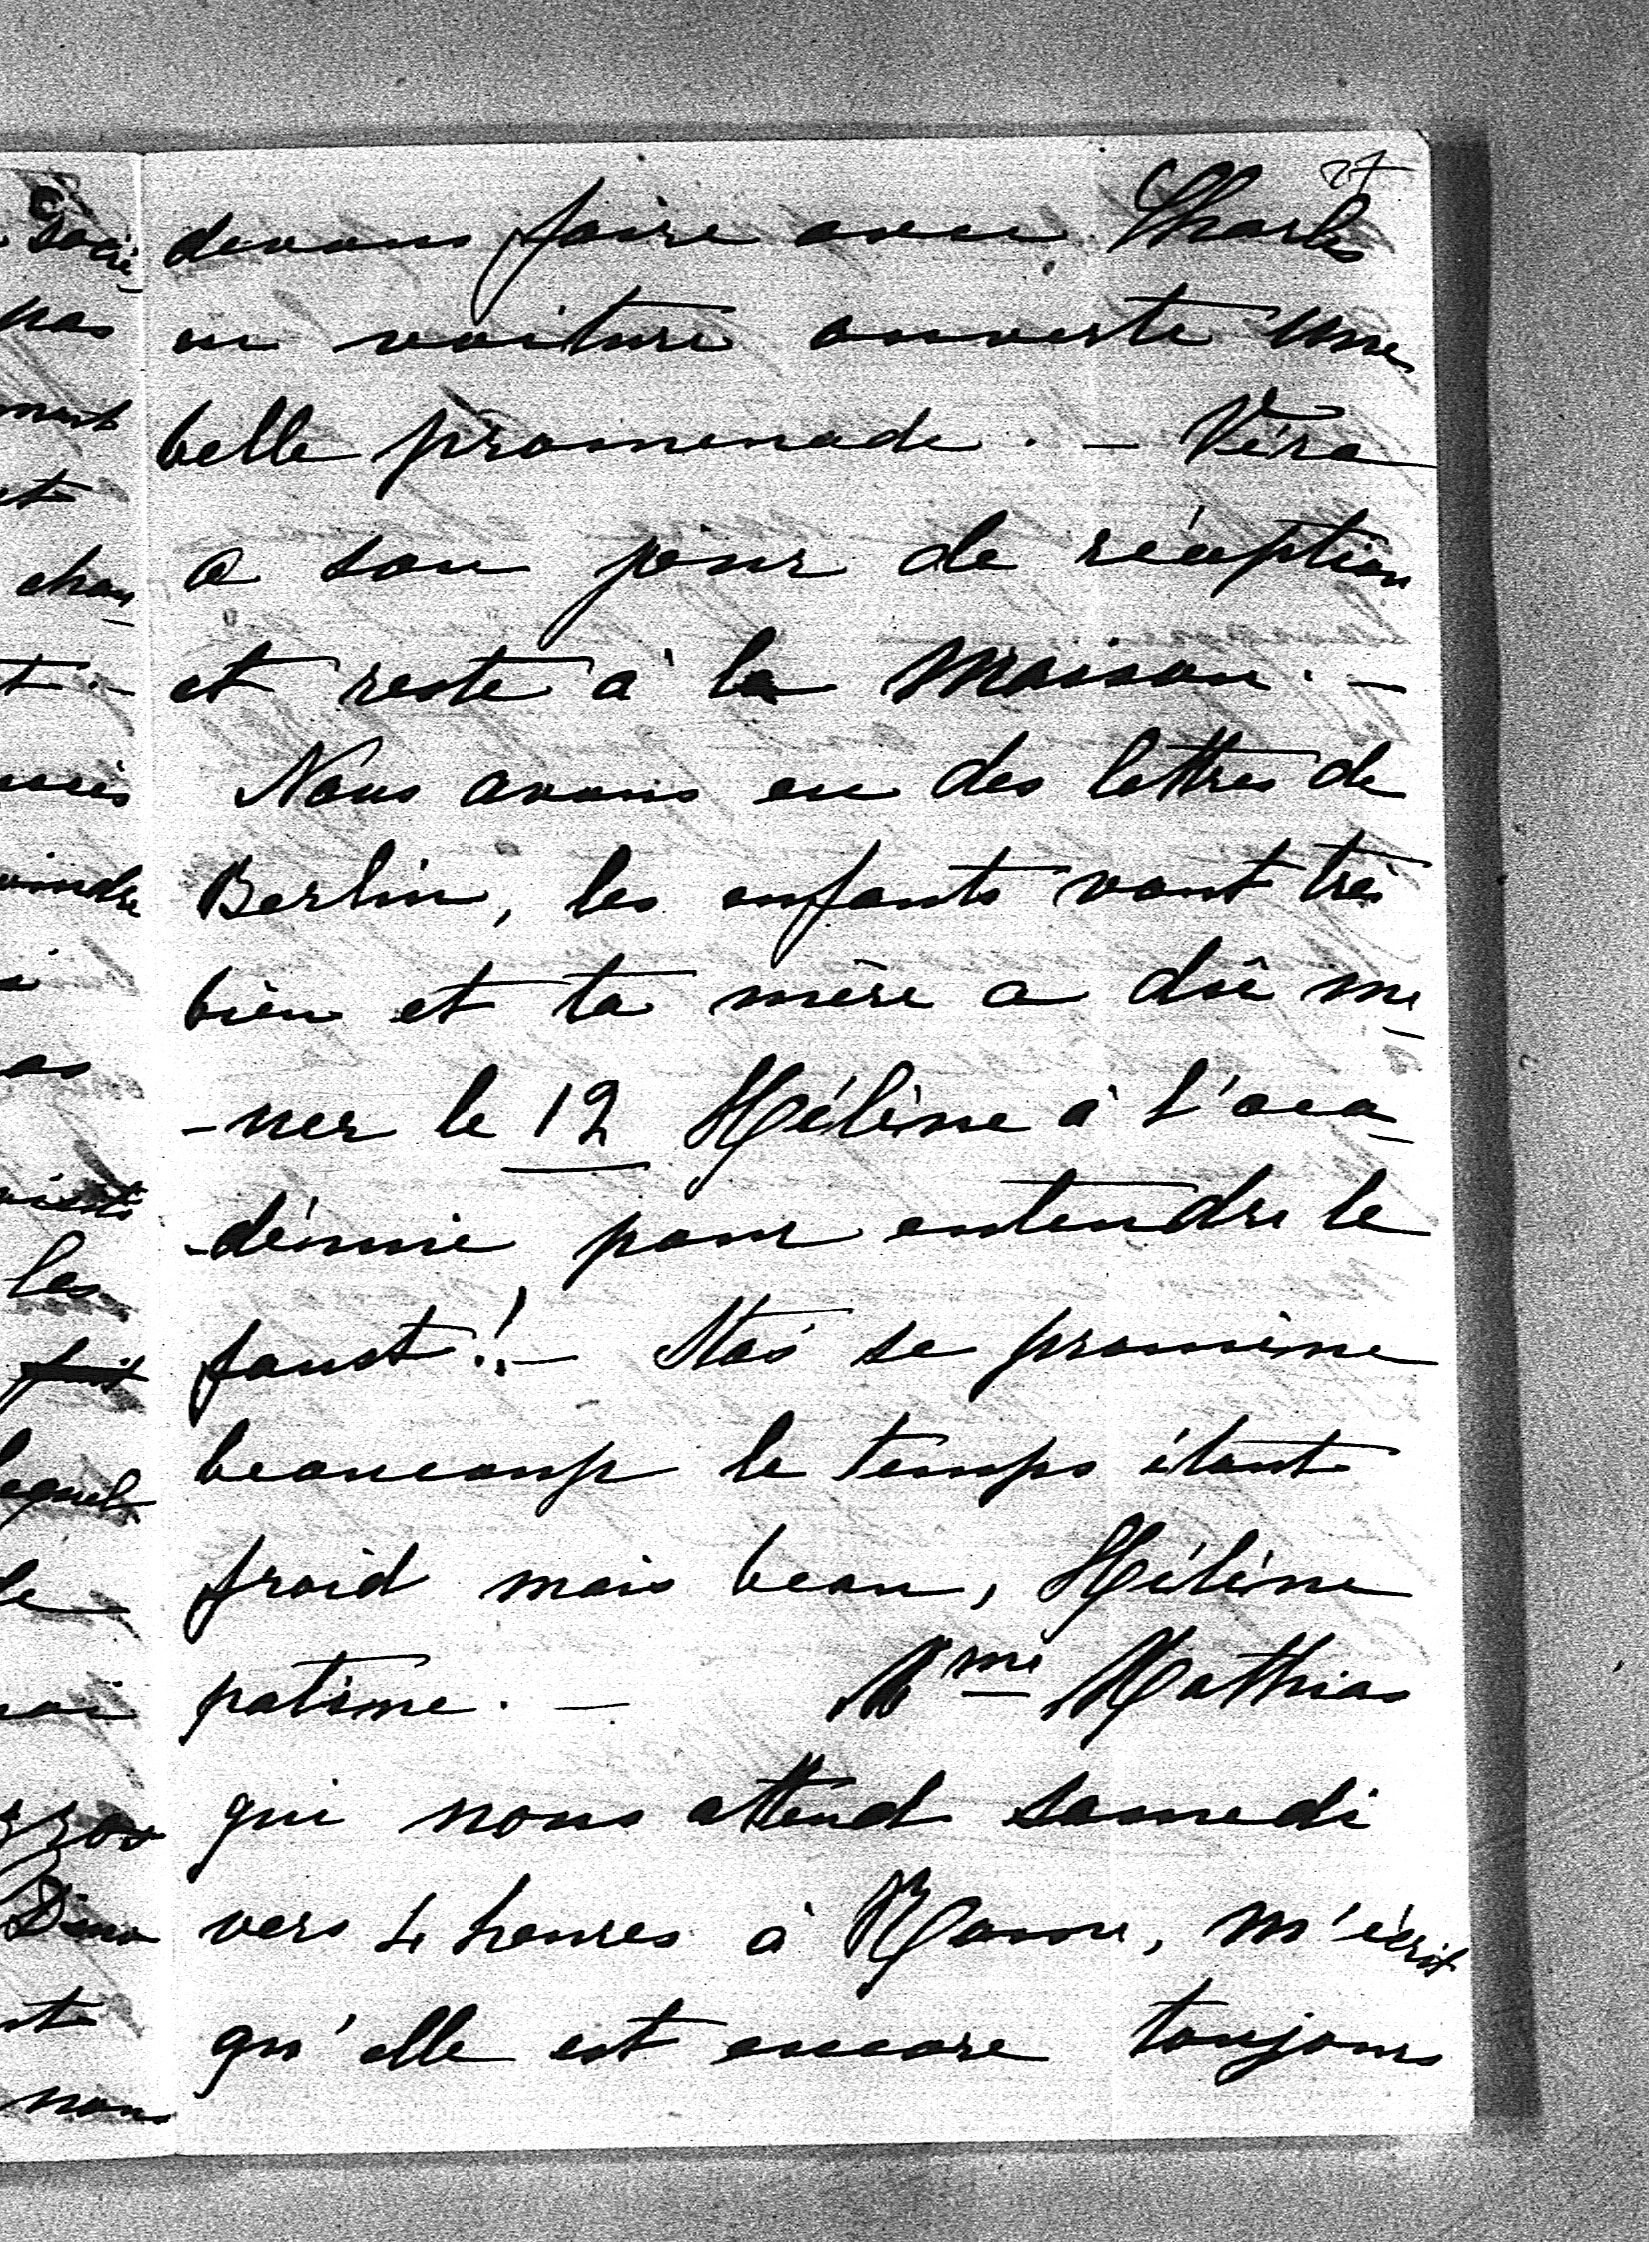 27
devons faire avec Charles
en voiture ouverte une
belle promenade. – Véra
a son jour de réception
et reste à la maison. –
Nous avons eu des lettres de
Berlin, les enfants vont très
bien et ta mère a dû me-
-ner le 12 Hélène à l'aca-
-démie pour entendre le
faust! – Stas se promène
beaucoup le temps étant
froid mais beau, Hélène
patine. – Mme Mathias
qui nous attend samedi
vers 4 heures à , m'écrit
qu'elle est encore toujours